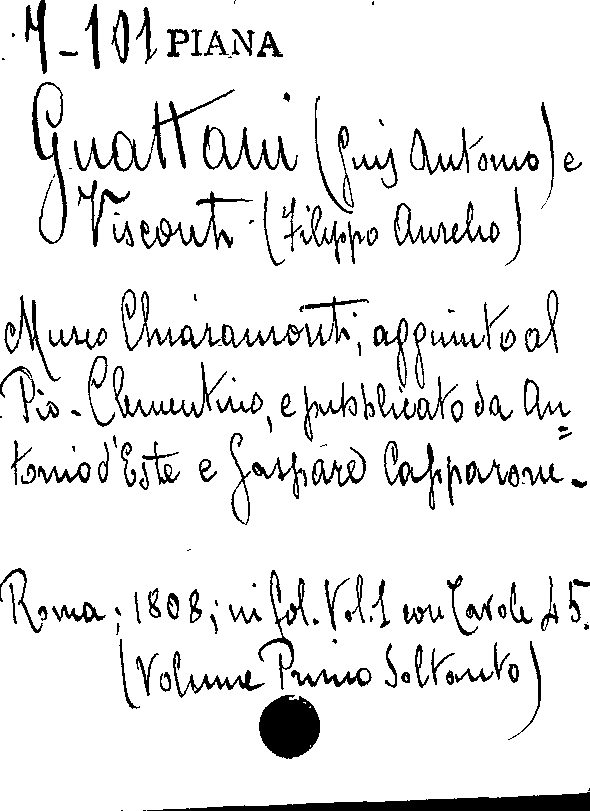 M-101 PIANA
Guattani (Giu͠s Antonio) e
Visconti (Filippo Aurelio)
Museo Chiaramonti, aggiunto al
Pio-Clementino, e pubblicato da An=
tonio d'Este e Gaspare Capparone.
Roma; 1808; in fol. Vol. 1 con Tavole 45.
(Volume Primo Soltanto)